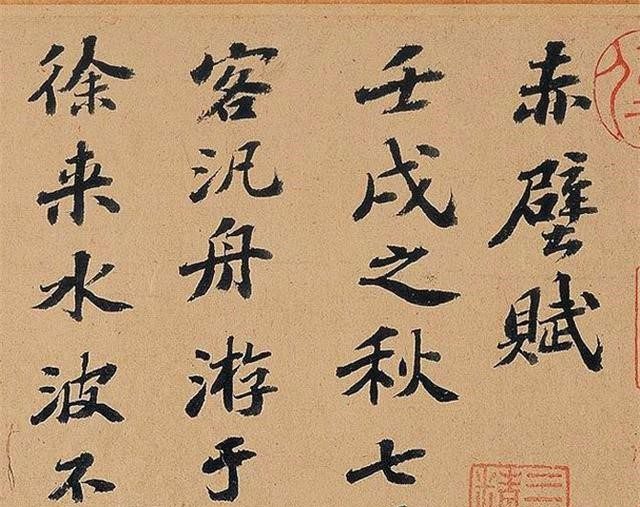 赤壁賦
壬戌之秋七
客汎舟游于
徐来水波不